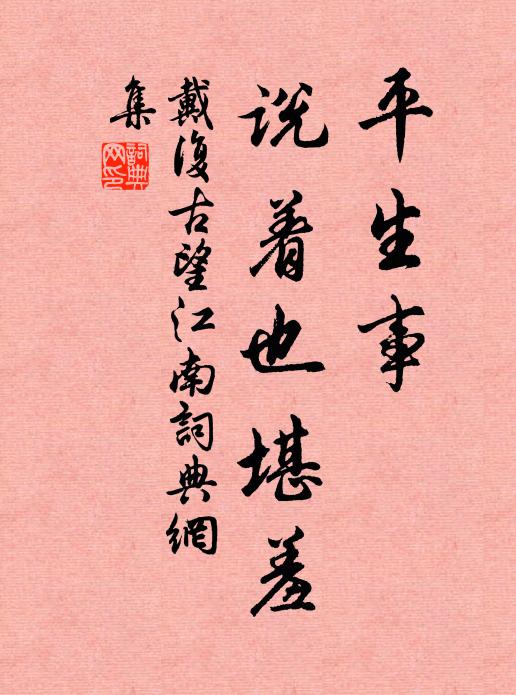 平生事
说着也堪羞
戴復古望江南詞典網
集
詞典
网印